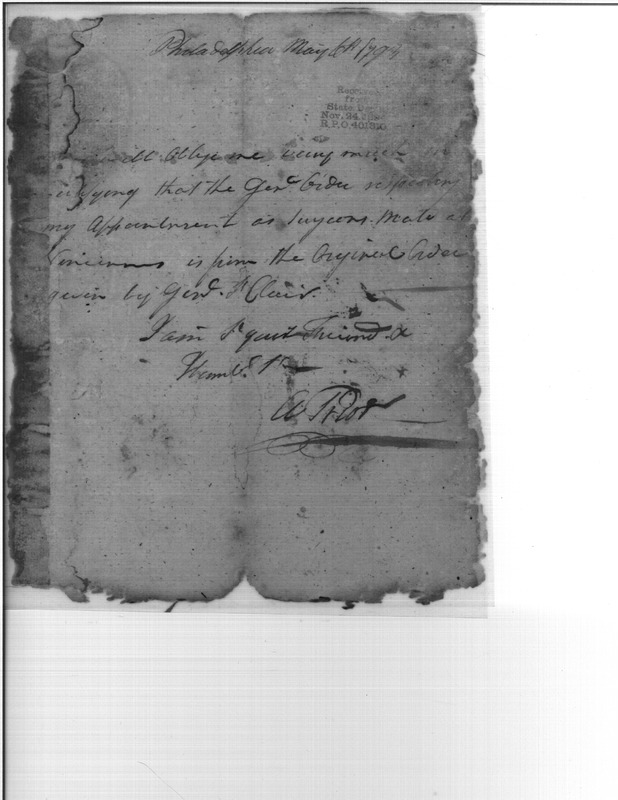 Philadelphia May 6th 1794
Received
from
State Dep
Nov. 24
R.P.O. 401810
Oblige me very much
that the Genl Order respecting
my Appointment as Surgeons Mate at
Vincennes is from the Original Order
given by Genl. St Clair.
I am Sr your Friend &
Humbl. St